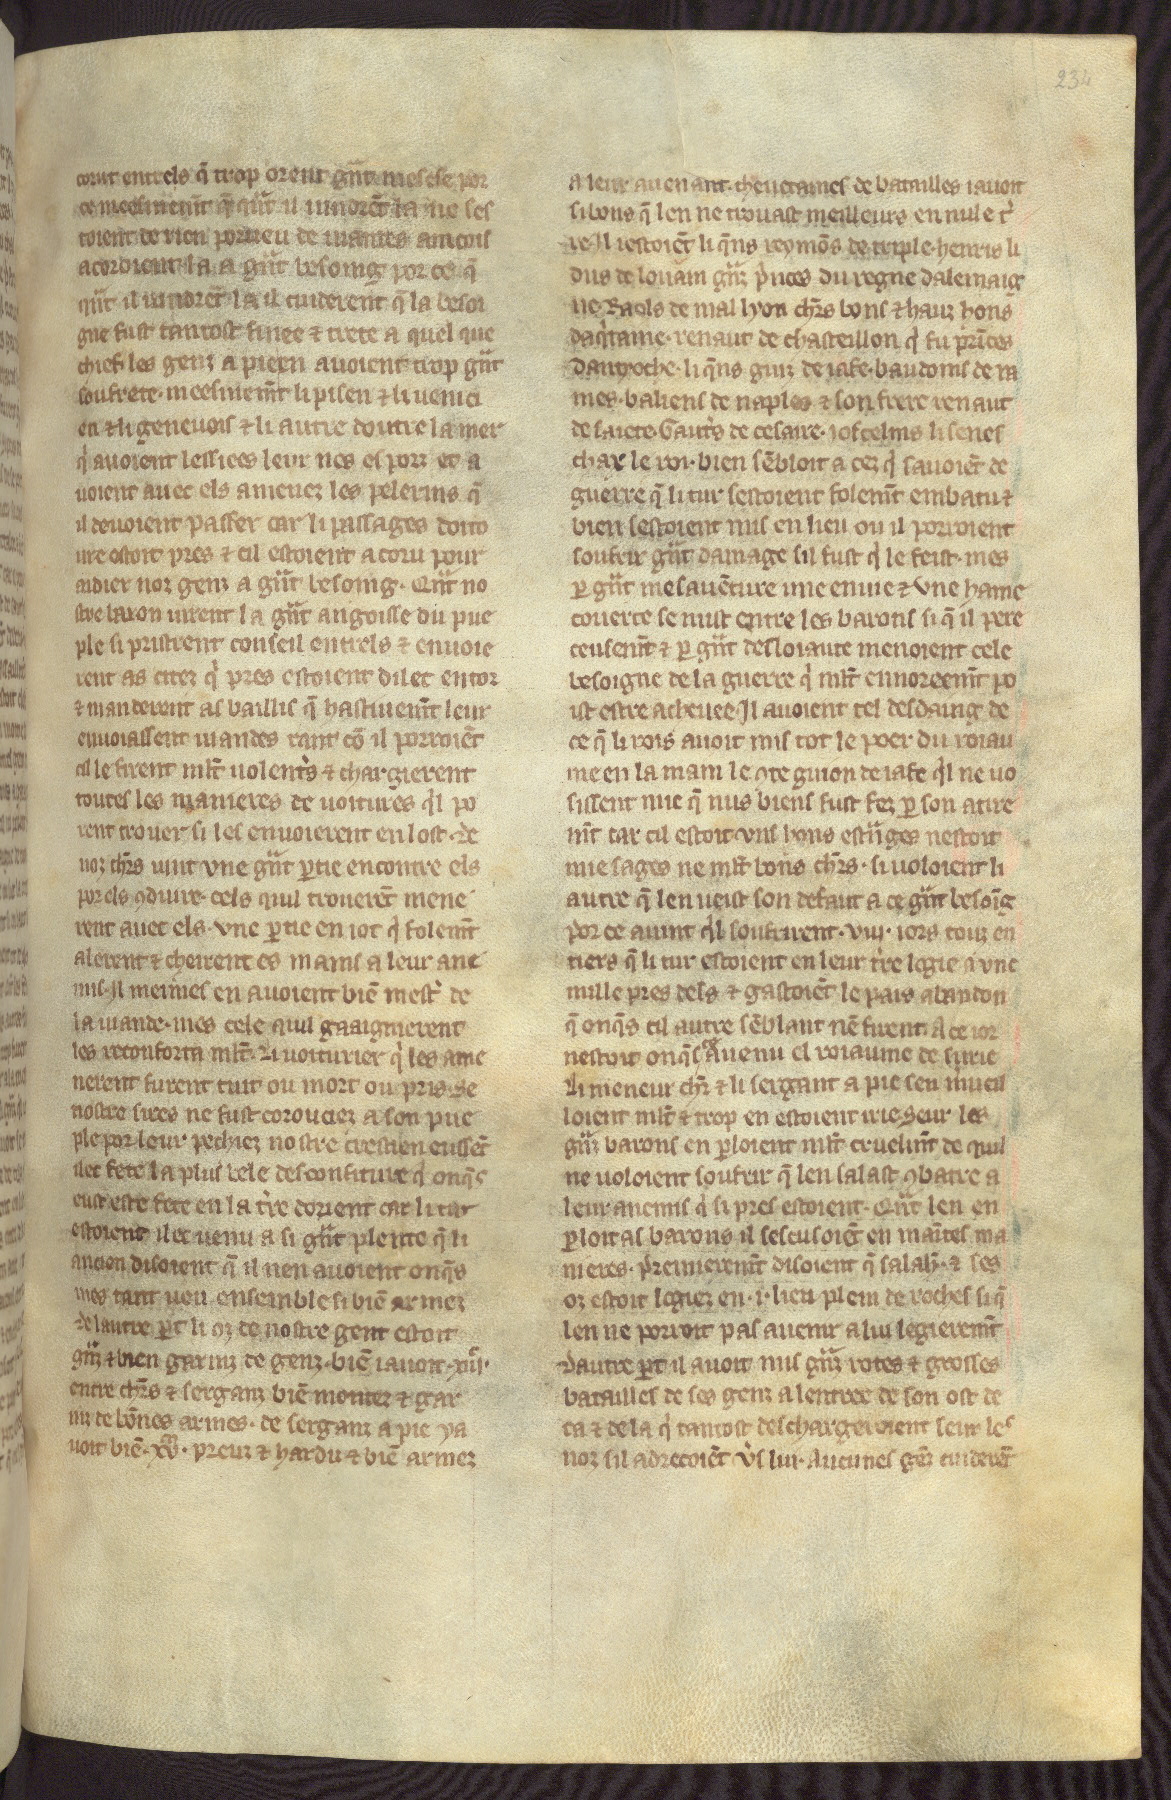 234
corut entrels q̃ trop orent gñt mesese por
ce meesmemt̃ q̃ qñt il uindrẽt la ne ses
toient de rien porueu de uiandes aincois
acoroient la a gñt besoing por ce q̃
qñt il uindrẽt la il cuiderent q̃ la besoi
gne fust tantost finee & trete a quel que
chief. les genz a pieen auoient trop gñt
soufrete. meesmemt̃ li pisen & li uenici
en & li geneuois & li autre doutre la mer
q̇ auoient lessiees leur nes es porz et a
uoient auec els amenez les pelerins q̃
il deuoient passer car li passages doito
ure estoit pres & cil estoient acoru pour
aidier noz genz a gñt besoing. Qñt no
stre baron uirent la gñt angoisse du pue
ple si pristrent conseil entrels & enuoie
rent as citez q̇ pres estoient dilec entor
& manderent as baillis q̃ hastiuemt̃ leur
enuoiassent uiandes tant cõ il porroiẽt
cil le firent ml̃t uolentrs & chargierent
toutes les manieres de uoitures q̇l po
rent trouer si les enuoierent en lost. de
noz chrs̃ uint vne gñt ptie encontre els
por els ꝯduire. cels quil trouerẽt mene
rent auec els. vne ptie en iot q̇ folemt̃
alerent & cheirent es mains a leur ane
mis. Il meimes en auoient biẽ mestr de
la uiande. mes cele quil gaaignierent
les reconforta ml̃t. Li voiturier q̇ les ame
nerent furent tuit ou mort ou pris. Se
nostre sires ne fust corouciez a son pue
ple por leur pechiez nostre crestien eussẽt
ilec fete la plus bele desconfiture q̇ onq̃s
eust este fete en la tr̃e dorient car li tur
estoient ilec uenu a si gñt plente q̃ li
ancien disoient q̃ il nen auoient onq̃s
mes tant ueu ensemble si biẽ armez
de lautre pt li oz de nostre gent estoit
gñz & bien garniz de genz. biẽ iauoit .xiii.
entre chrs̃ & serganz biẽ montez & gar
niz de bõnes armes. de serganz a pie ya
uoit biẽ .xv. preuz & hardiz & biẽ armez
a leur auenant. cheuetaines de batailles iauoit
si bons q̃ len ne trouast meilleurs en nule tr̃
re. Il iestoiẽt li q̃ns reymõs de triple. henris li
dus de louain gñz p̃nces du regne dalemaig
ne. Raols de mal lyon chrs̃ bons & hauz hons
daq̃taine. renaut de chasteillon q̇ fu prĩces
dantyoche. li q̃ns guiz de iafe. baudoins de ra
mes. baliens de naples & son frere renaut
de saiete. Gautrs de cesaire. ioscelins li senes
chax le roi. bien sẽbloit a cez q̇ sauoiẽt de
guerre q̃ li tur sestoient folemt̃ embatu &
bien sestoient mis en lieu ou il porroient
soufrir gñt damage sil fust q̇ le feist. mes
p gñt mesauẽture une enuie & vne haine
couerte se mist entre les barons si q̃ il pere
ceusemt̃ & p gñt desloiaute menoient cele
besoigne de la guerre q̇ ml̃t ennoreemt̃ po
ist estre acheuee. Il auoient tel desdaing de
ce q̃ li rois auoit mis tot le poer du roiau
me en la main le ꝯte guion de iafe q̇l ne uo
sissent mie q̃ nus biens fust fez p son atire
mt̃ car cil estoit vns hons estr̃ges nestoit
mie sages ne ml̃t bons chrs̃. si uoloient li
autre q̃ len ueist son defaut a ce gñt besoĩg
por ce auint q̇l soufrirent .viii. iors touz en
tiers q̃ li tur estoient en leur tr̃e logie a vne
mille pres dels & gastoiẽt le pais abandon
q̃ onq̃s cil autre sẽblant nẽ firent. A ce ior
nestoit onq̃s auenu el roiaume de surie
Li meneur chr̃ & li sergant a pie sen m̃ueil
loient ml̃t & trop en estoient irie. Seur les
gñz barons en ploient ml̃t cruelmt̃ de quil
ne uoloient soufrir q̃ len salast ꝯbatre a
leur anemis q̇ si pres estoient. Qñt len en
ploit as barons il sescusoiẽt en maĩtes ma
nieres. premieremt̃ disoient q̃ salah̃. & ses
oz estoit logiez en .i. lieu plein de roches si q̃
len ne porroit pas auenir a lui legieremt̃
dautre pt il auoit mis gñz rotes & grosses
batailles de ses genz a lentree de son ost de
ca & de la q̇ tantost deschargeroient seur les
noz sil adrecoiẽt vs̃ lui. Aucunes gẽz cuiderẽt